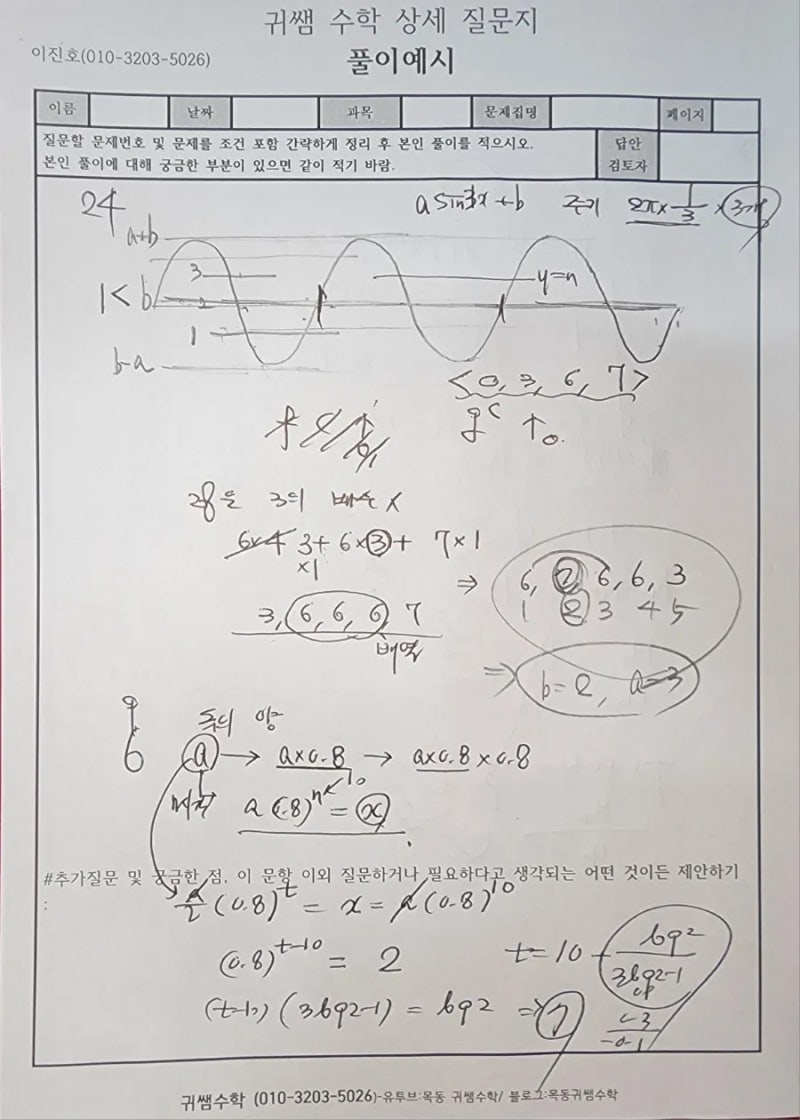 귀쌤 수학 상세 질문지
이진호(010-3203-5026)
풀이예시
이름 날짜 과목 문제집명 페이지
질문할 문제번호 및 문제를 조건 포함 간략하게 정리 후 본인 풀이를 적으시오.
본인 풀이에 대해 궁금한 부분이 있으면 같이 적기 바람.
답안
검토자
24
a sin3x+b 주기 2π×1/3 ×3개
a+b
3
y=n
1< b
2
1
b-a
<0, 3, 6, 7>
3의 배수 x
6×4 3+ 6×3+ 7×1
×1
⇒ 6, 2, 6, 6, 3
1 2 3 4 5
3, 6, 6, 6, 7
배열
⇒ b=2, a=3
6
a → a×0.8 → a×0.8×0.8
10
a(0.8)ⁿ = x
#추가질문 및 궁금한 점. 이 문항 이외 질문하거나 필요하다고 생각되는 어떤 것이든 제안하기
:
a/2 (0.8)^t = x = a(0.8)^10
(0.8)^t-10 = 2
t=10- log2/3log2-1
(t-10)(3log2-1) = log2 ⇒
귀쌤수학 (010-3203-5026)-유투브:목동 귀쌤수학/ 블로그:목동귀쌤수학